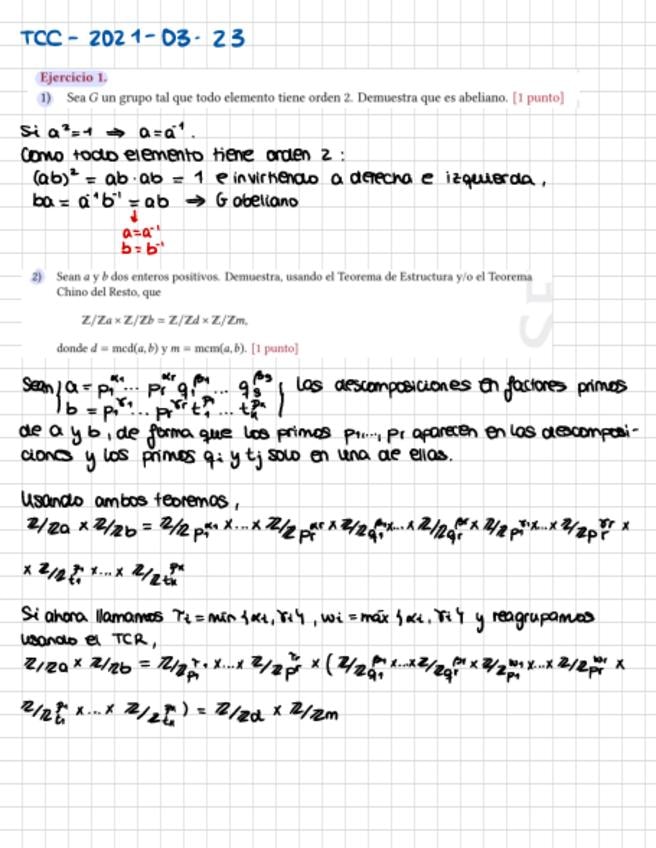 TCC - 2021-03-23
Ejercicio 1.
1) Sea G un grupo tal que todo elemento tiene orden 2. Demuestra que es abeliano. [1 punto]
Si a² = 1 ⇒ a = a⁻¹.
Como todo elemento tiene orden 2 :
(ab)² = ab · ab = 1 e invirtiendo a derecha e izquierda,
ba = a⁻¹b⁻¹ = ab ⇒ G abeliano
↓
a = a⁻¹
b = b⁻¹
2) Sean a y b dos enteros positivos. Demuestra, usando el Teorema de Estructura y/o el Teorema
Chino del Resto, que
Z/Za × Z/Zb = Z/Zd × Z/Zm,
donde d = mcd(a, b) y m = mcm(a, b). [1 punto]
Sean { a = p₁^α₁ ... pr^αr q₁^β₁ ... qs^βs } las descomposiciones en factores primos
b = p₁^γ₁ ... pr^γr t₁ ... tk
de a y b, de forma que los primos p₁,..., pr aparecen en las descomposi-
ciones y los primos qi y tj solo en una de ellas.
Usando ambos teoremas,
Z/Za × Z/Zb = Z/Z p₁^α₁ × ... × Z/Z pr^αr × Z/Z q₁^β₁ × ... × Z/Z qr^βr × Z/Z p₁^γ₁ × ... × Z/Z pr^γr ×
× Z/Z t₁ × ... × Z/Z tk
Si ahora llamamos τi = mín {αi, γi}, wi = máx {αi, γi} y reagrupamos
usando el TCR,
Z/Za × Z/Zb = Z/Z p₁^τ₁ × ... × Z/Z pr^τr × ( Z/Z q₁^β₁ × ... × Z/Z qr^βr × Z/Z p₁^w₁ × ... × Z/Z pr^wr ×
Z/Z t₁ × ... × Z/Z tk ) = Z/Zd × Z/Zm